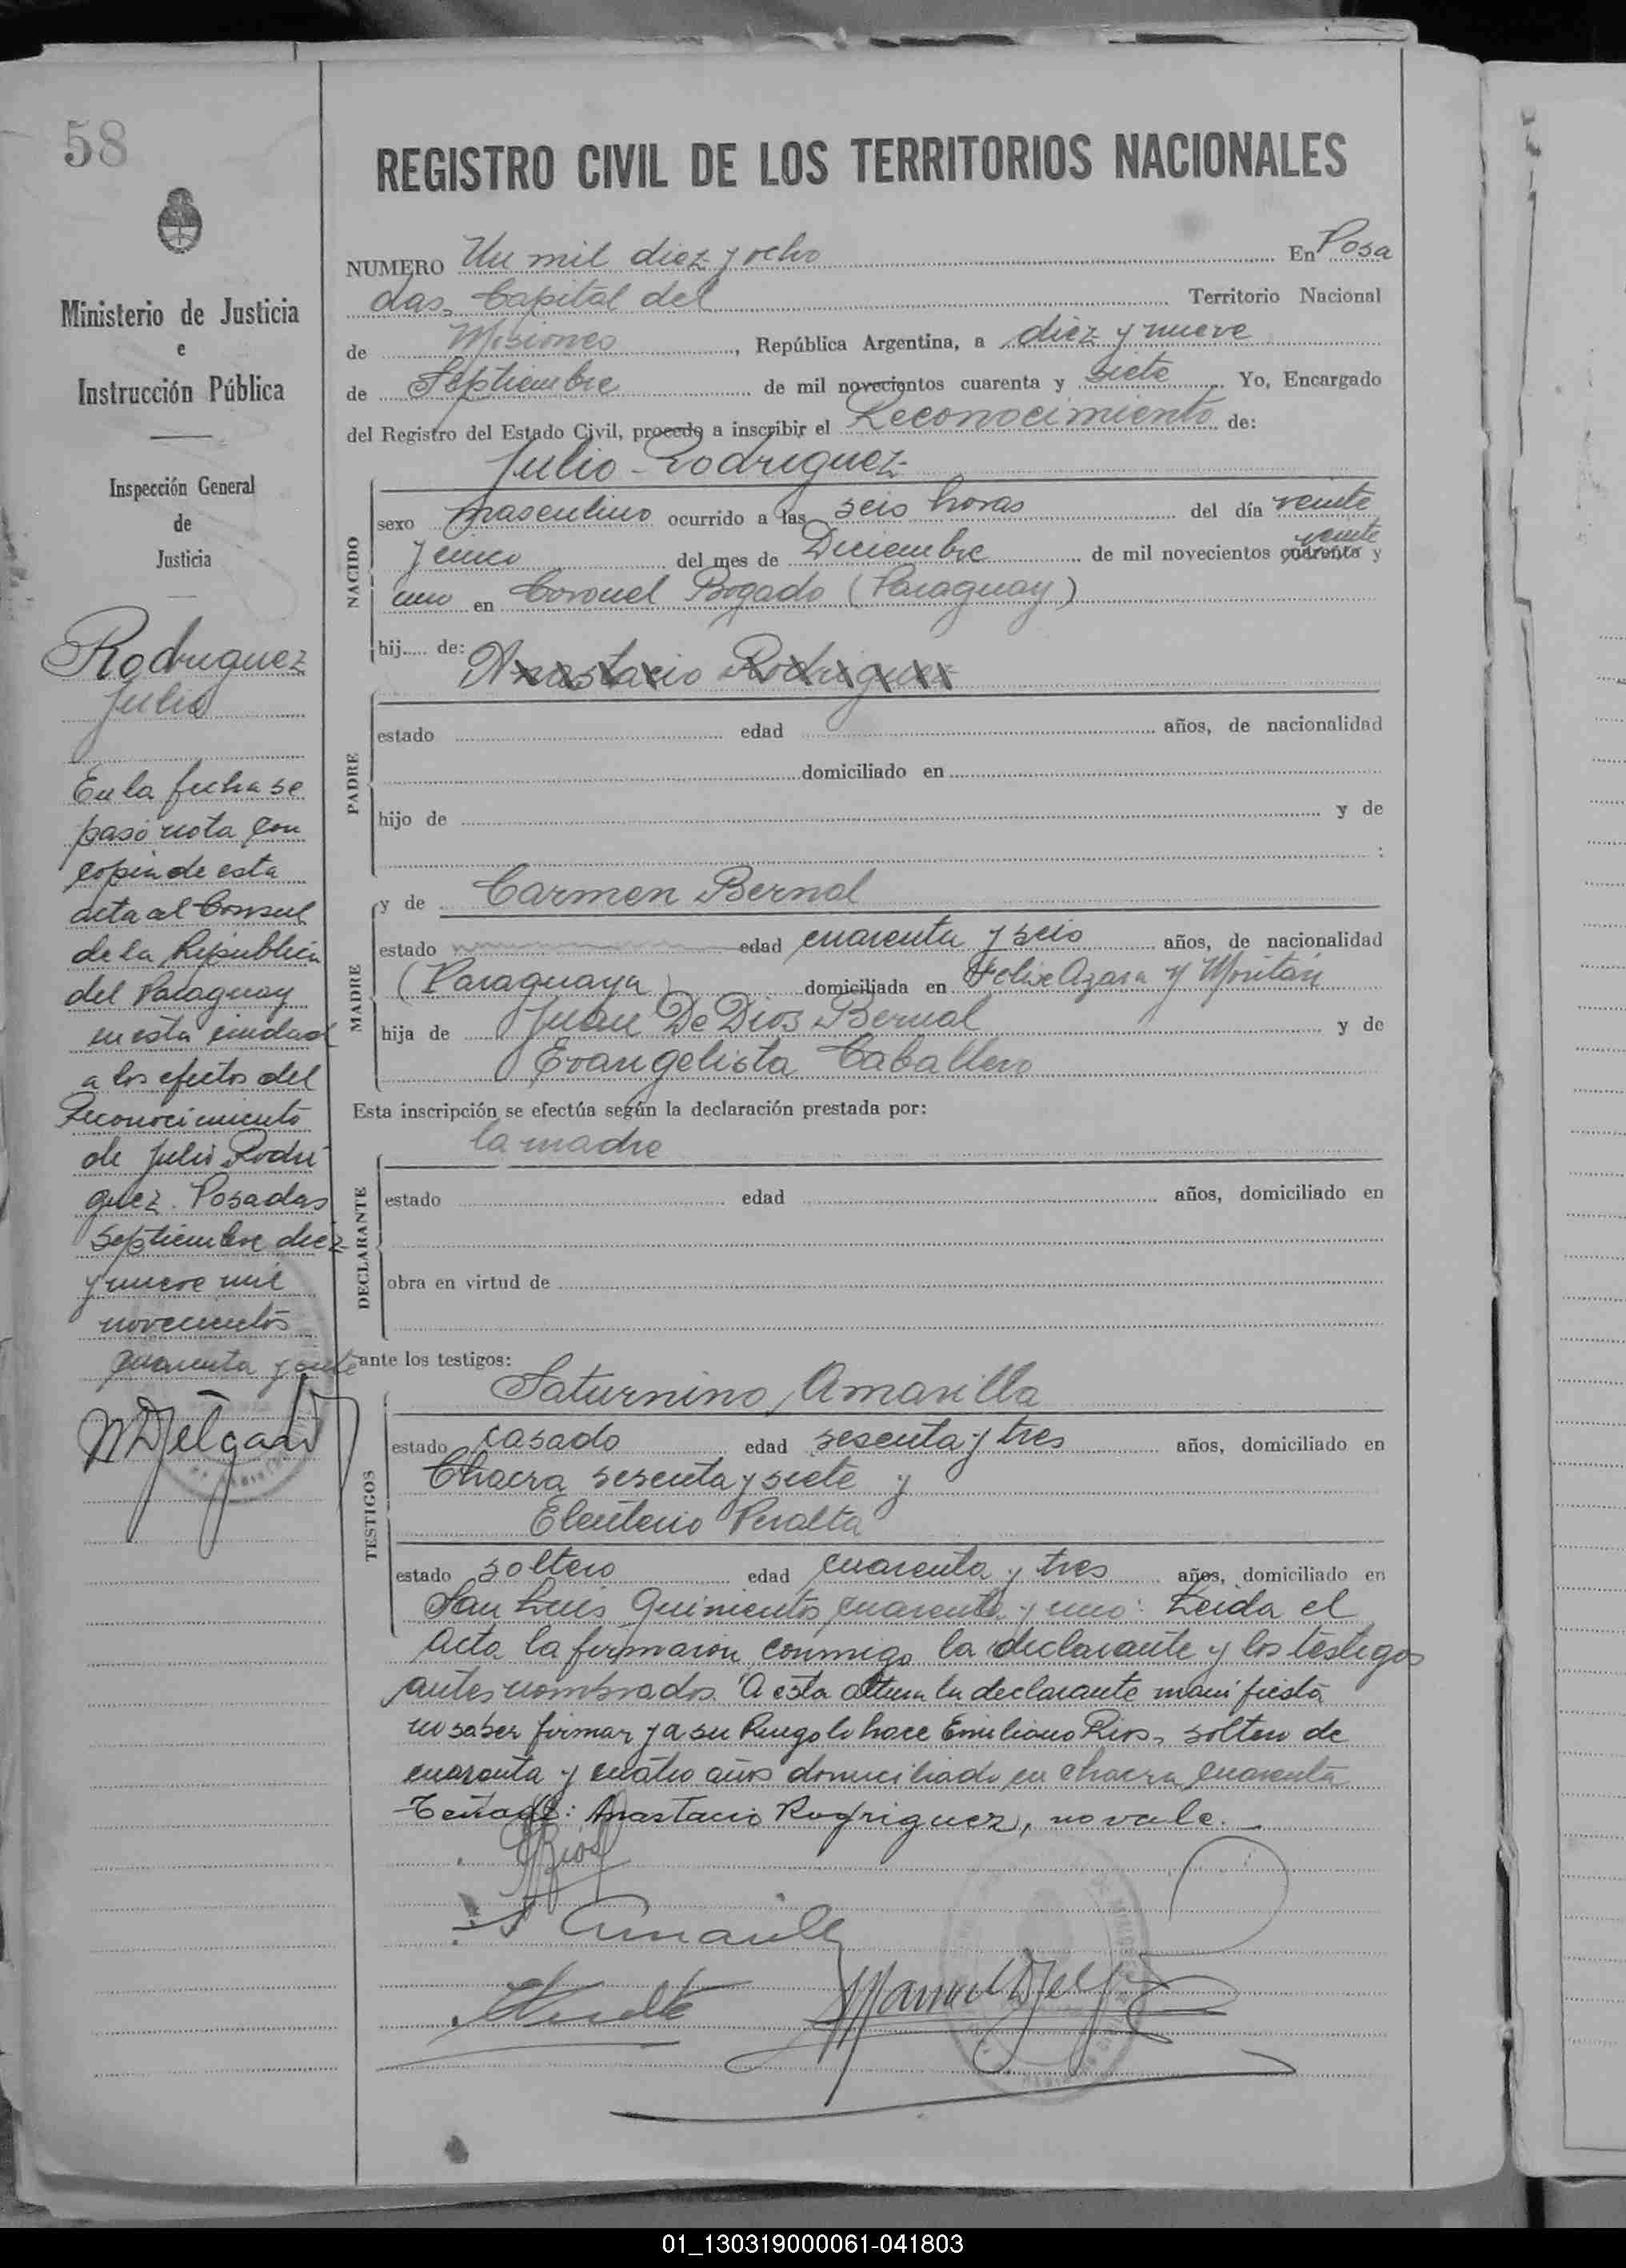 58
Ministerio de Justicia
e
Instrucción Pública
Inspección General
de
Justicia
Rodriguez
Julio
En la fecha se
pasó nota con
copia de esta
acta al Consul
de la República
del Paraguay
en esta ciudad
a los efectos del
Reconocimiento
de Julio Rodri
guez. Posadas
Septiembre diez
y nueve mil
novecientos
cuarenta y siete
MDelgado
REGISTRO CIVIL DE LOS TERRITORIOS NACIONALES
NUMERO Un mil diez y ocho En Posa
das, Capital del Territorio Nacional
de Misiones, República Argentina, a diez y nueve
de Septiembre de mil novecientos cuarenta y siete Yo, Encargado
del Registro del Estado Civil, procedo a inscribir el Reconocimiento de:
Julio Rodriguez
NACIDO
sexo masculino ocurrido a las seis horas del día veinte
y cinco del mes de Diciembre de mil novecientos cuarenta veinte y
uno en Coronel Bogado (Paraguay)
hij..... de:
Anastacio Rodriguez
PADRE
estado edad años, de nacionalidad
domiciliado en
hijo de y de
:
MADRE
y de Carmen Bernal
estado edad cuarenta y seis años, de nacionalidad
(Paraguaya) domiciliada en Felix Azara y Moritán
hija de Juan De Dios Bernal y de
Evangelista Caballero
Esta inscripción se efectúa según la declaración prestada por:
la madre
DECLARANTE
estado edad años, domiciliado en
obra en virtud de
ante los testigos:
Saturnino Amarilla
TESTIGOS
estado casado edad sesenta y tres años, domiciliado en
Chacra sesenta y siete y
Eleuterio Peralta
estado soltero edad cuarenta y tres años, domiciliado en
San Luis Quinientos cuarenta y uno: Leida el
acta la firmaron conmigo la declarante y los testigos
antes nombrados. A esta altura la declarante manifiesta
no saber firmar y a su Ruego lo hace Emiliano Rios, soltero de
cuarenta y cuatro años domiciliado en chacra cuarenta
Testado: Anastacio Rodriguez, no vale.
ERios
S Amarilla
Manuel Delg
01_130319000061-041803